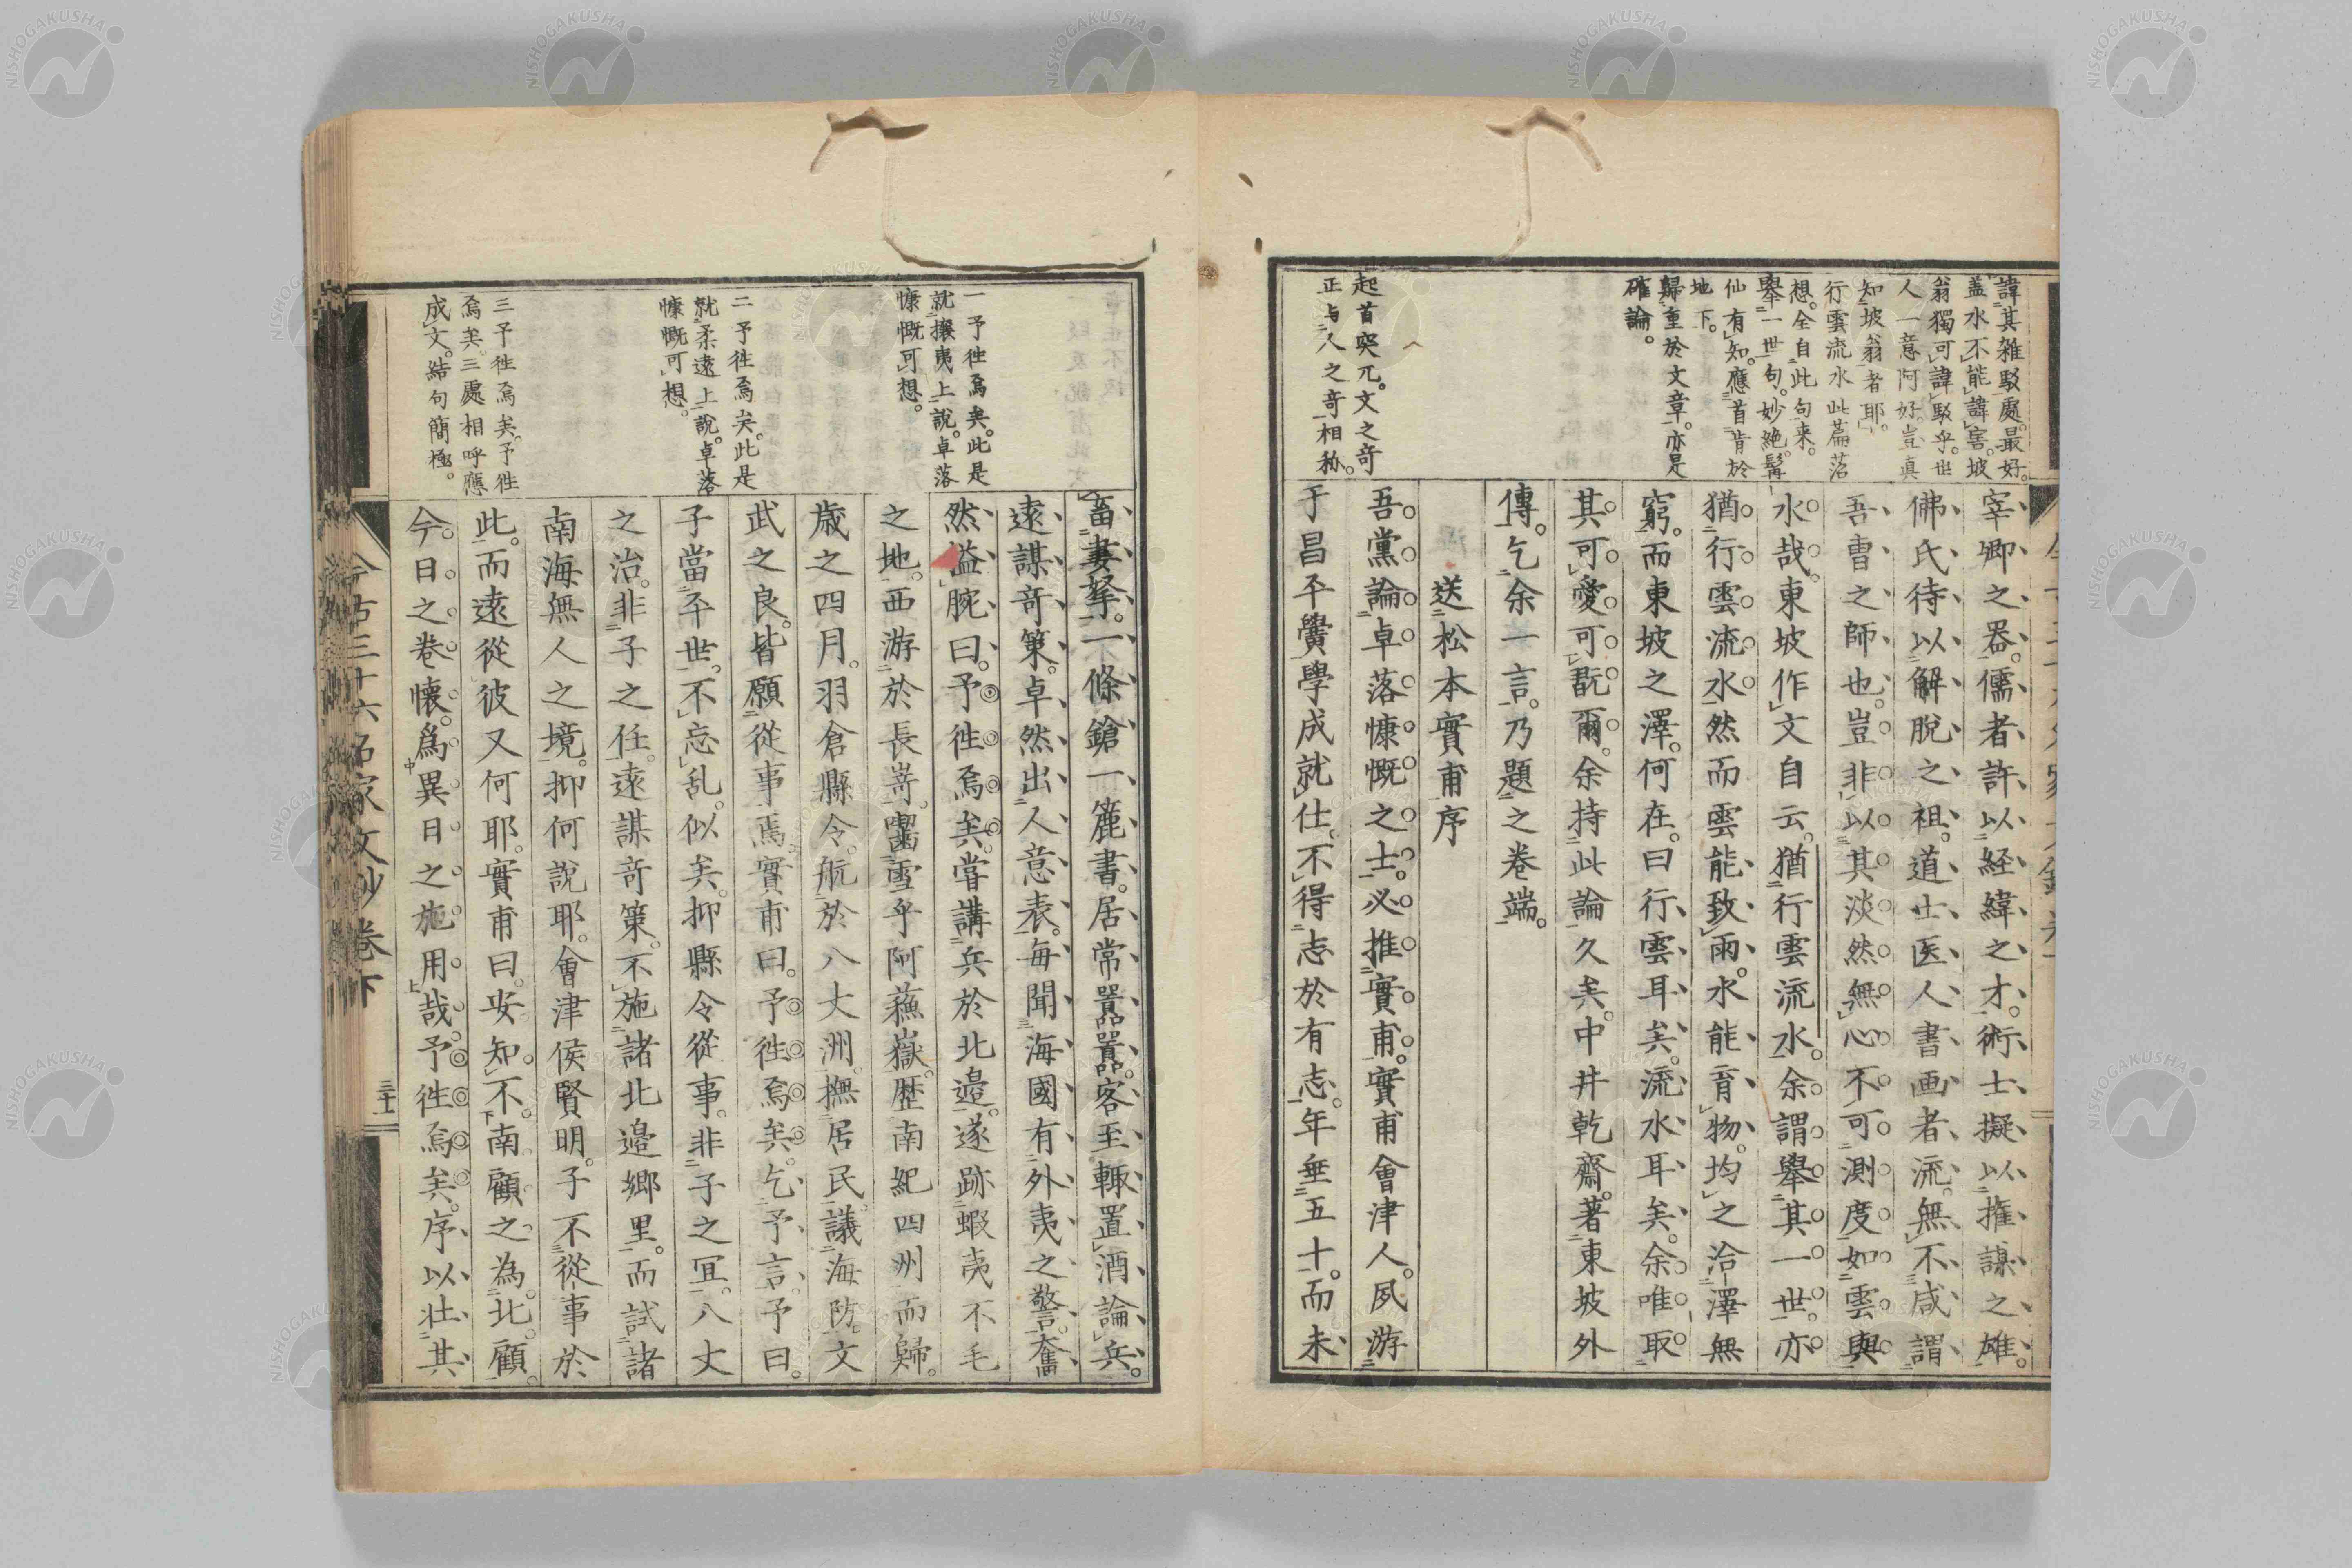 諱其雑駁處。最好。
盖水不能諱窖。坡
翁獨可諱駁乎。世
人一意阿好。豈真
知坡翁者耶。
行雲流水此篇落
想。全自此句来。
舉一世句。妙絶。髯
仙有知。應首肯於
地下。
歸重於文章。亦是
確論。
起首突兀。文之奇
正与人之奇相称。
宰卿之器。儒者許以経緯之才。術士擬以権謀之雄。
佛氏待以解脱之祖。道士医人書画者流。無不咸謂
吾曹之師也。豈非以其淡然無心不可測度如雲與
水哉。東坡作文自云。猶行雲流水。余謂舉其一世。亦
猶行雲流水。然而雲能致雨。水能育物。均之治澤無
窮。而東坡之澤。何在。曰行雲耳矣。流水耳矣。余唯取
其可愛可翫爾。余持此論久矣。中井乾齋。著東坡外
傳。乞余一言。乃題之巻端。
送松本實甫序
吾黨論卓落慷慨之士。必推實甫。實甫會津人。夙游
于昌平黌學成就仕。不得志於有志。年垂五十。而未
畜妻孥。一條鎗一簏書。居常囂囂。客至輙置酒論兵。
遠謀奇策。卓然出人意表。毎聞海國有外夷之警。奮
然搤腕曰。予徃焉矣。甞講兵於北邉。遂跡蝦夷不毛
之地。西游於長嵜。囓雪乎阿蘓嶽。歴南紀四州而歸。
歳之四月。羽倉縣令。航於八丈洲。撫居民議海防。文
武之良。皆願從事焉實甫曰。予徃焉矣。乞予言。予曰。
子當平世。不忘乱。似矣。抑縣令從事。非子之冝。八丈
之治。非子之任。遠謀奇策。不施諸北邉郷里。而試諸
南海無人之境。抑何説耶。會津侯賢明。子不從事於
此。而遠從彼又何耶。實甫曰。安知不南顧之為北顧。
今日之巻懐。爲異日之施用哉。予徃焉矣。序以壮其
一予徃焉矣。此是
就攘夷上説。卓落
慷慨可想。
二予徃焉矣。此是
就柔遠上説。卓落
慷慨可想。
三予徃焉矣。予徃
焉矣。三處相呼應
成文。結句簡極。
今古三十六名家文鈔巻下
NISHOGAKUSHA